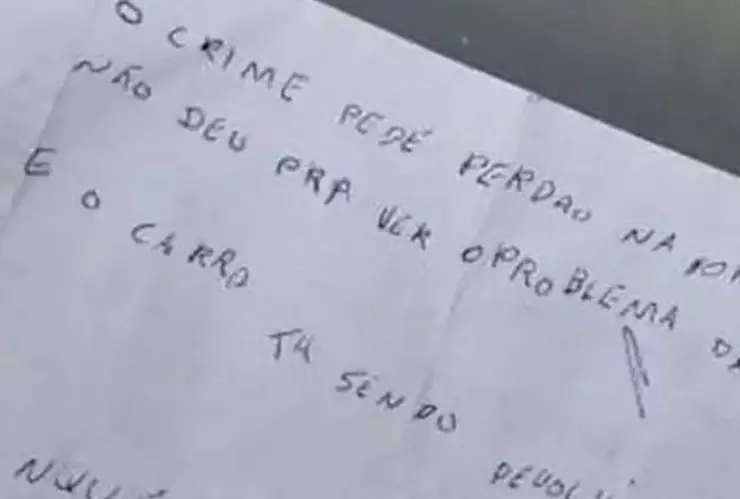 O CRIME PEDE PERDAO NA
NÃO DEU PRA VER O PROBLEMA
E O CARRO TA SENDO